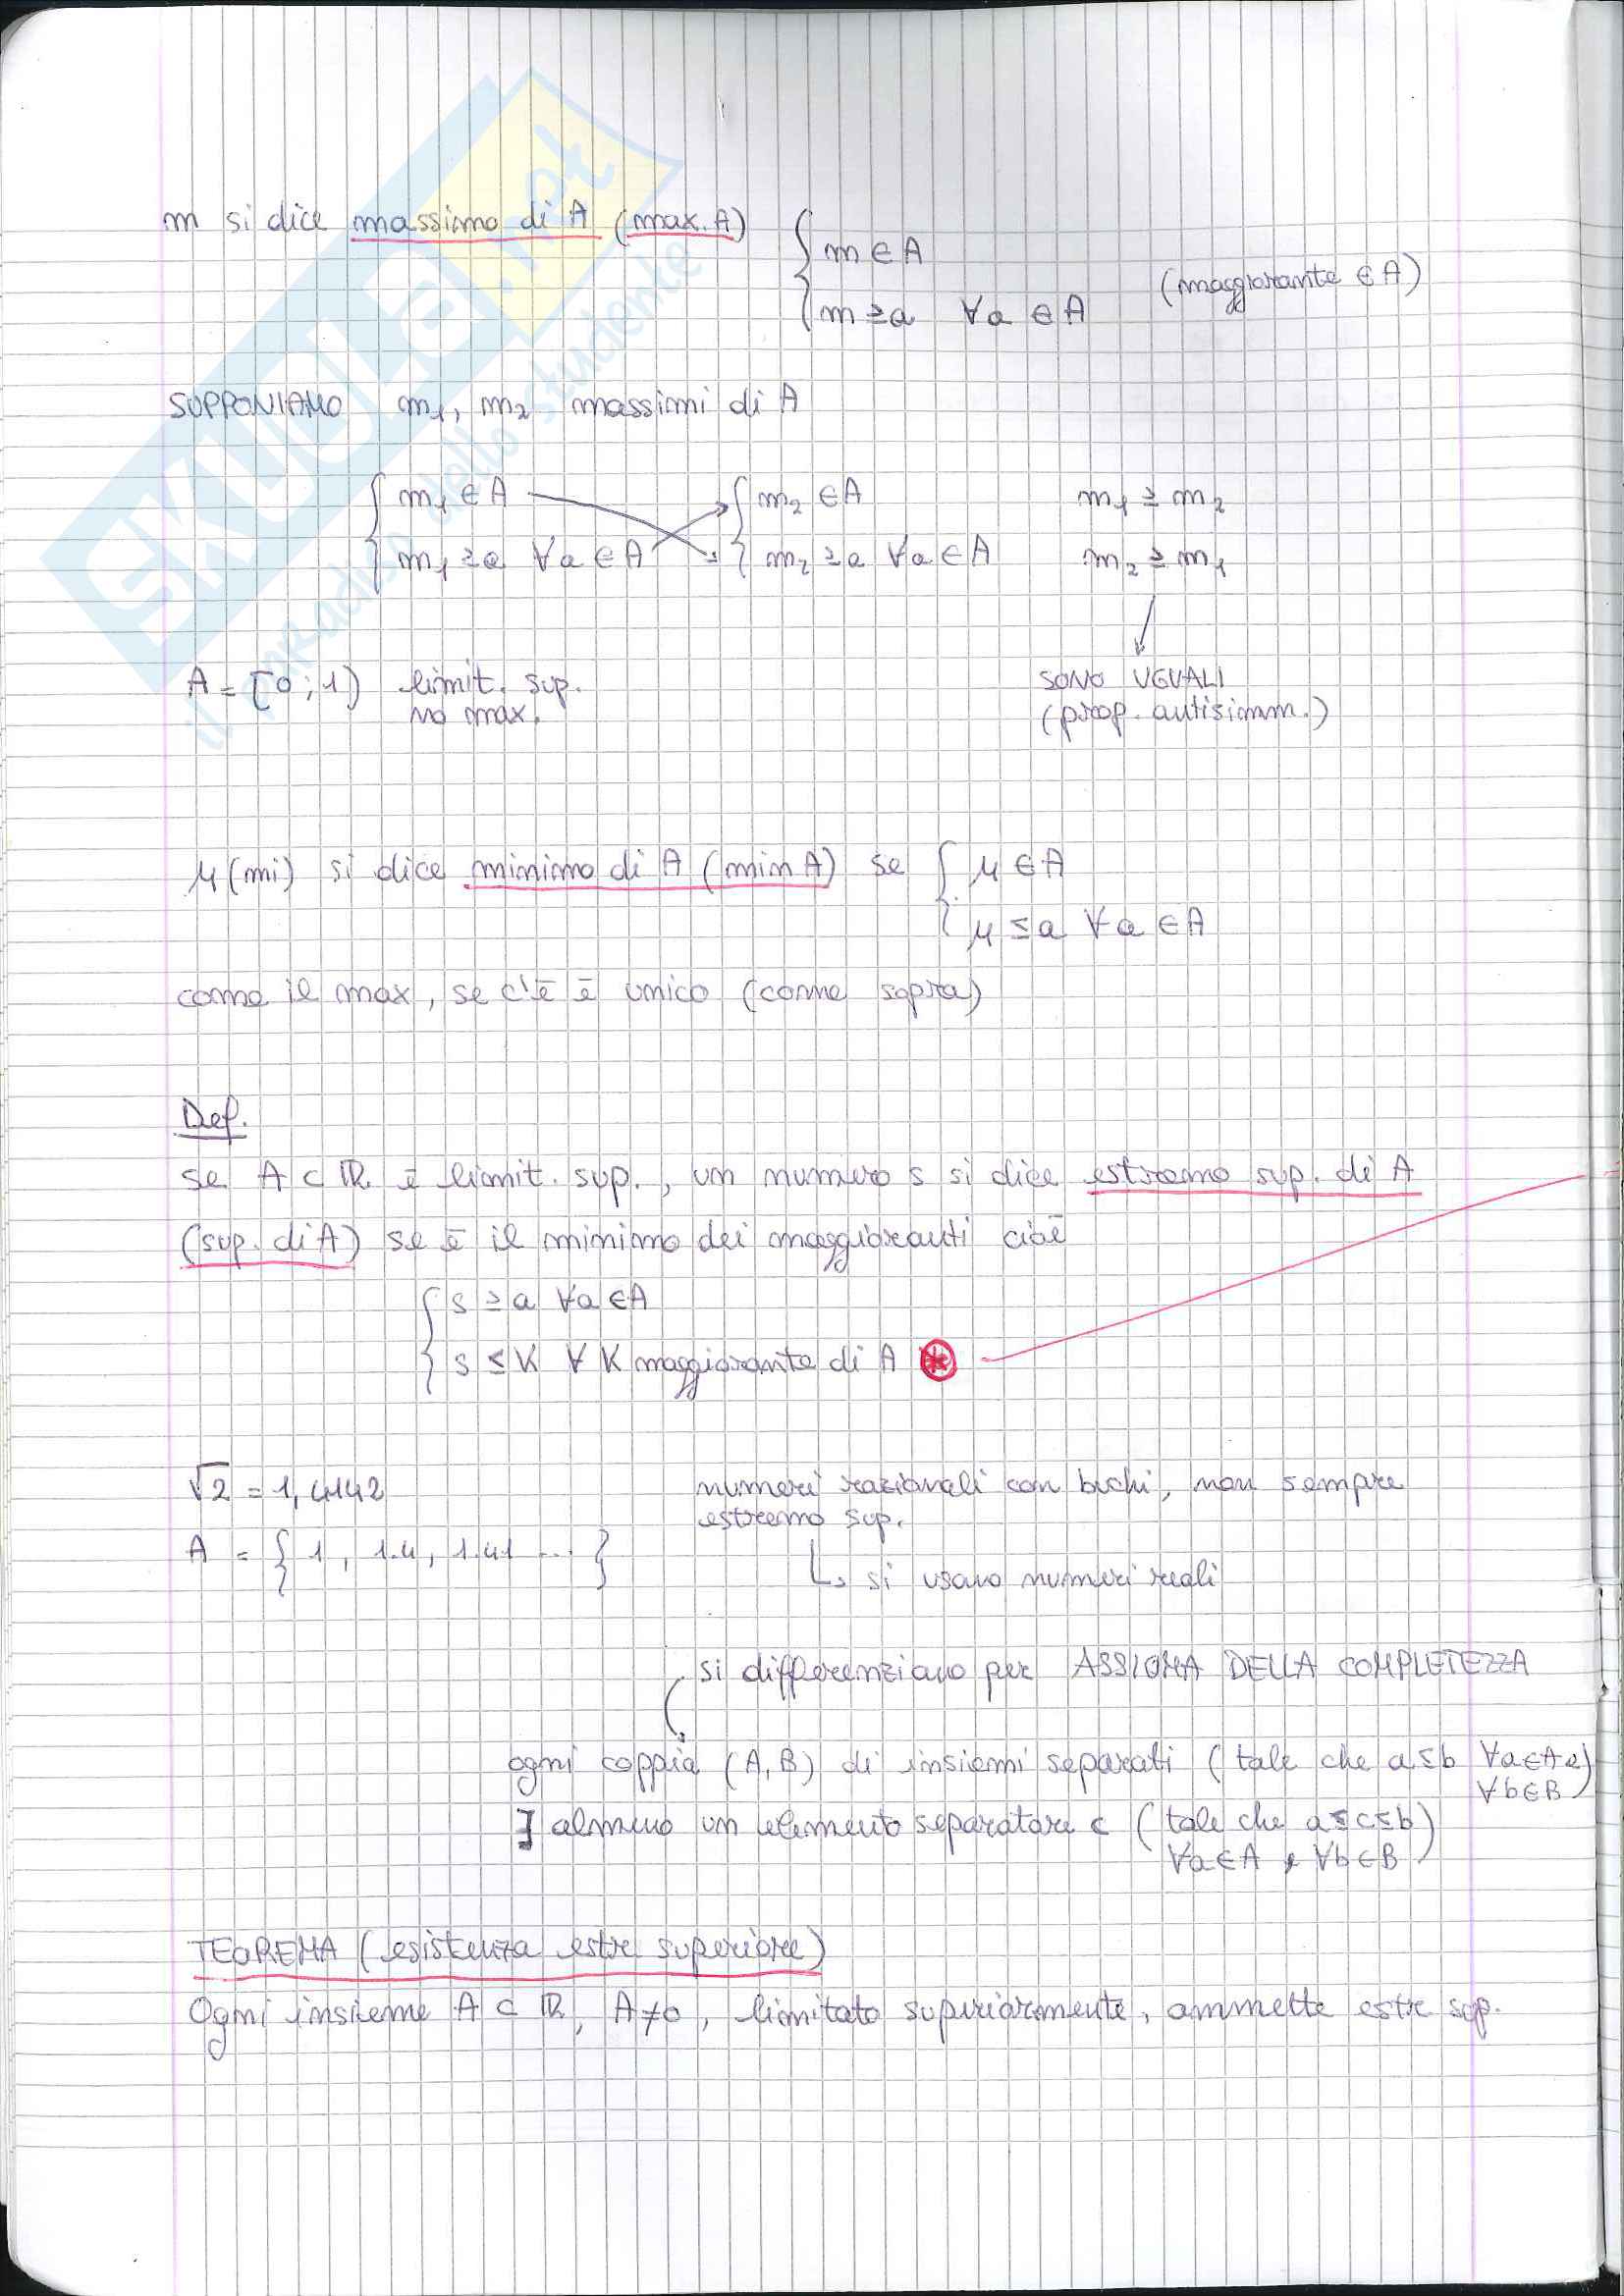 SKUOLA.net
il paradiso dello studente
m si dice massimo di A (max.A) { m ∈ A
m ≥ a ∀a ∈ A (maggiorante ∈ A)
SUPPONIAMO m₁, m₂ massimi di A
{ m₁ ∈ A { m₂ ∈ A m₁ ≥ m₂
m₁ ≥ a ∀a ∈ A m₂ ≥ a ∀a ∈ A m₂ ≥ m₁
A = [0;1) limit. sup.
no max.
SONO UGUALI
(prop. antisimm.)
μ (mi) si dice minimo di A (min A) se { μ ∈ A
μ ≤ a ∀a ∈ A
come il max, se c'è è unico (come sopra)
Def.
se A ⊂ ℝ è limit. sup., un numero s si dice estremo sup. di A
(sup. di A) se è il minimo dei maggioranti cioè
{ s ≥ a ∀a ∈ A
s ≤ K ∀ K maggiorante di A ⊛
√2 = 1,4142
A = { 1, 1.4, 1.41 ... }
numeri razionali con buchi, non sempre
estremo sup.
↳ si usano numeri reali
si differenziano per ASSIOMA DELLA COMPLETEZZA
ogni coppia (A,B) di insiemi separati (tale che a ≤ b ∀a∈A e
∀b∈B)
∃ almeno un elemento separatore c (tale che a ≤ c ≤ b)
∀a∈A, ∀b∈B
TEOREMA (esistenza estre superiore)
Ogni insieme A ⊂ ℝ, A≠0, limitato superiormente, ammette estre sup.